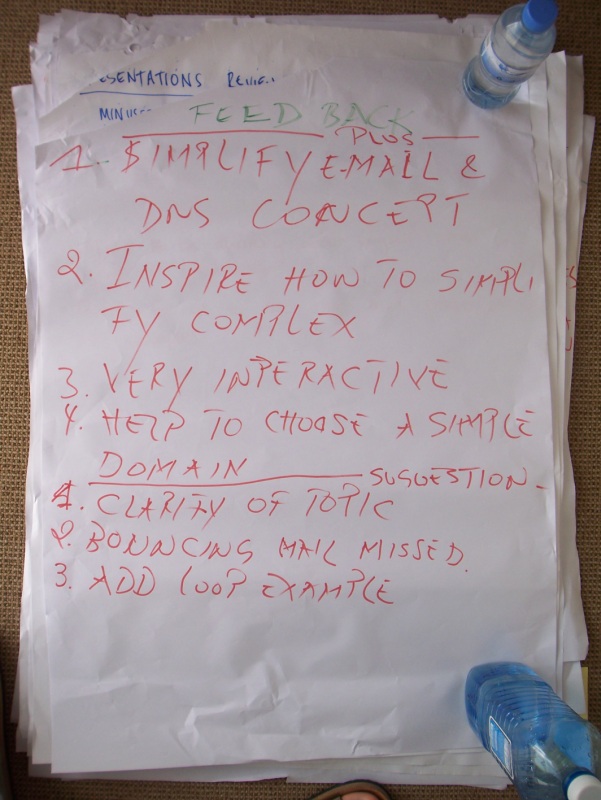 PRESENTATIONS REVIEW
MINUSES
FEED BACK
PLUS
1. SIMPLIFY E-MAIL &
DNS CONCEPT
2. INSPIRE HOW TO SIMPLI
FY COMPLEX
3. VERY INPERACTIVE
4. HELP TO CHOOSE A SIMPLE
DOMAIN
SUGUESTION -
1. CLARIFY OF TOPIC
2. BOUNCING MAIL MISSED.
3. ADD LOOP EXAMPLE